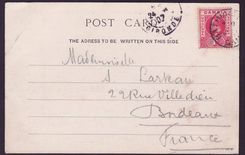 POST CARD
THE ADRESS TO BE WRITTEN ON THIS SIDE
GIRONDE
Mademoiselle
S. Larteau
22 Rue Villedieu
Bordeaux
France